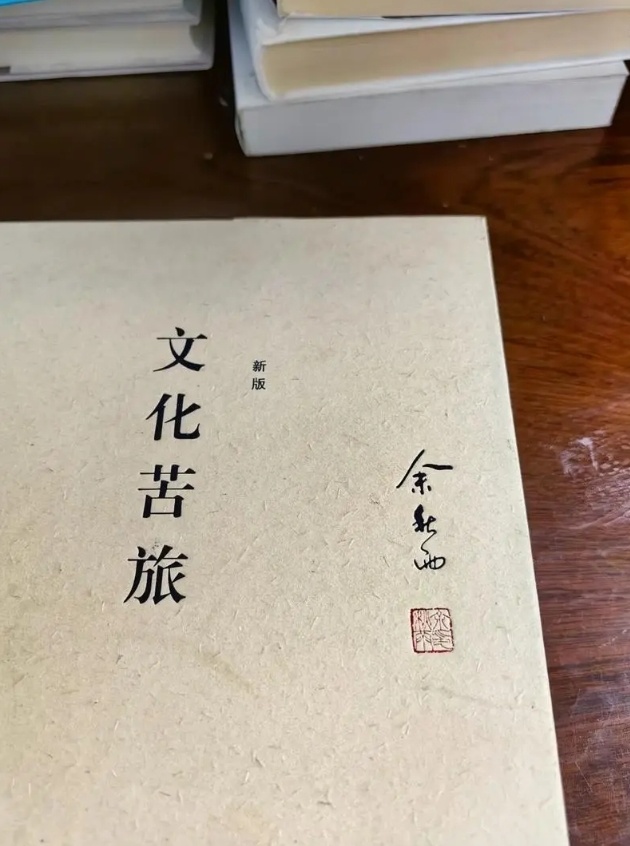 文化苦旅
新版
余秋雨